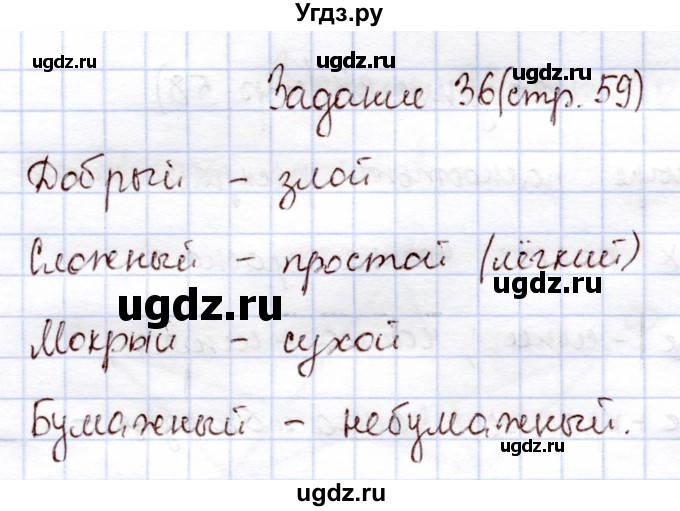 Угдз.ру
ugdz.ru ugdz.ru ugdz.ru
Задание 36(стр. 59)
Добрый - злой
Сложный - простой (лёгкий)
ugdz.ru ugdz.ru
Мокрый - сухой
Бумажный - небумажный.
ugdz.ru ugdz.ru
ugdz.ru